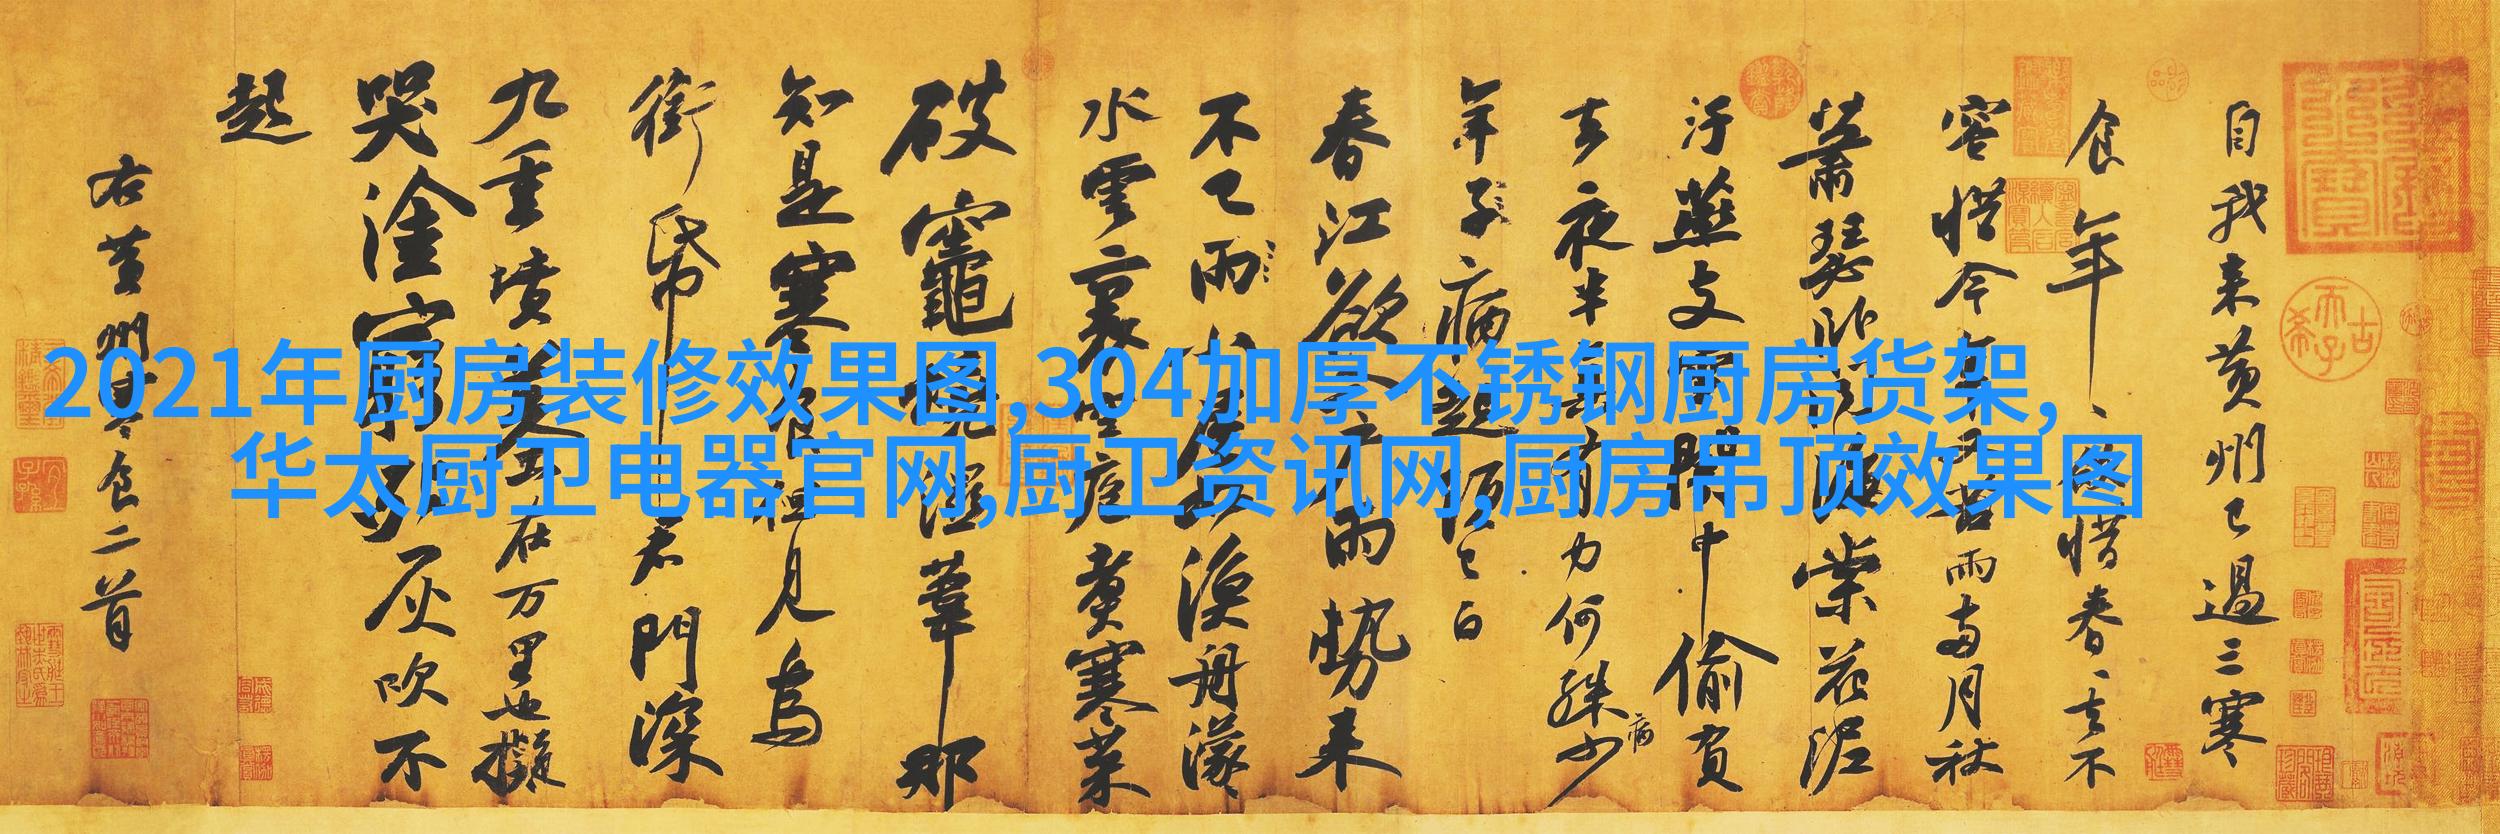 2021年厨房装修效果图,304加厚不锈钢厨房货架,
华太厨卫电器官网,厨卫资讯网,厨房吊顶效果图
自我来黄州已過三寒
食年、欲惜春、去不
容惜今年又苦雨兩月秋
蕭瑟卧聞海棠花泥
汙燕支雪闇中偷負
去夜半真有力何殊少
病
年子病起須已白
春江欲入戶雨勢来
不已雨小屋如漁舟濛
水雲裏空庖煮寒菜
破竈燒濕葦那
知是寒食但見烏
銜帋君門深
九重墳墓在万里也擬
哭塗窮死灰吹不
起
右黄州寒食二首